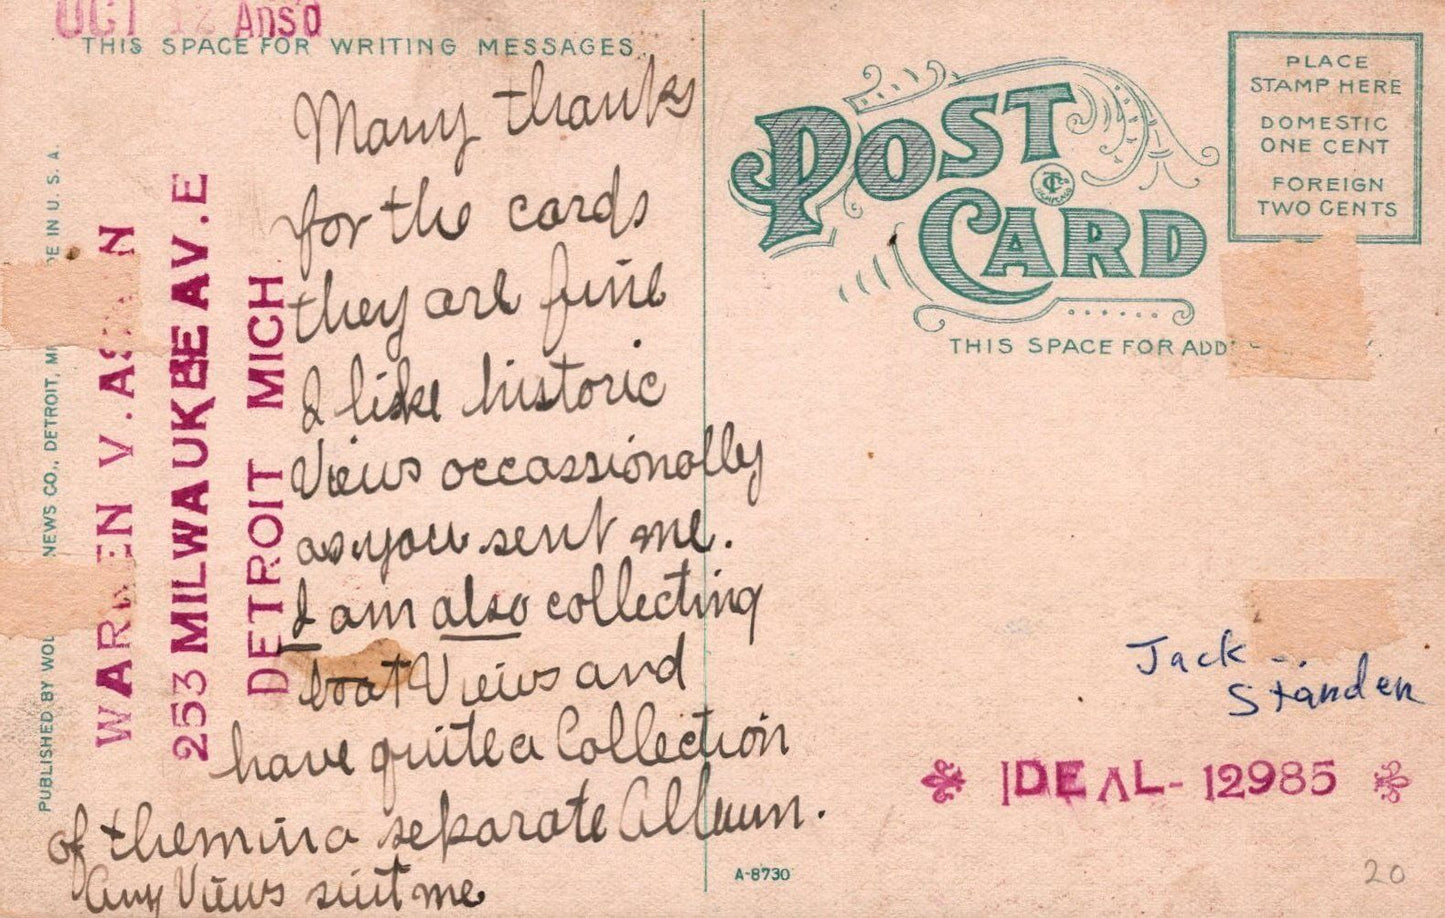 OCT 12 Ans'd
THIS SPACE FOR WRITING MESSAGES
Many thanks
for the cards
they are fine
I like historic
Views occassionally
as you sent me.
I am also collecting
boat Views and
have quite a Collection
of them in a separate Album.
Any Views suit me
WARREN V.
253 MILWAUKEE AV.E
DETROIT MICH
PUBLISHED BY NEWS CO., DETROIT, IN U. S. A.
POST
CARD
PLACE
STAMP HERE
DOMESTIC
ONE CENT
FOREIGN
TWO CENTS
THIS SPACE FOR
Jack
Standen
IDEAL-12985
A-8730
20